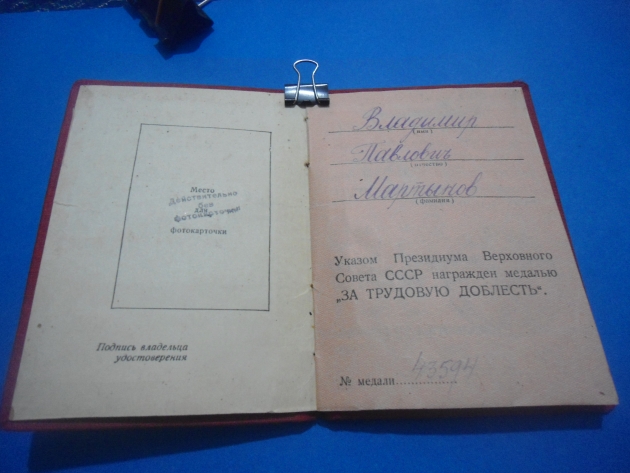 Место
для
Действительно
без
фотокарточки
Фотокарточки
Подпись владельца
удостоверения
Владимир
(имя)
Павлович
(отчество)
Мартынов
(фамилия)
Указом Президиума Верховного
Совета СССР награжден медалью
„ЗА ТРУДОВУЮ ДОБЛЕСТЬ“.
№ медали..............43594